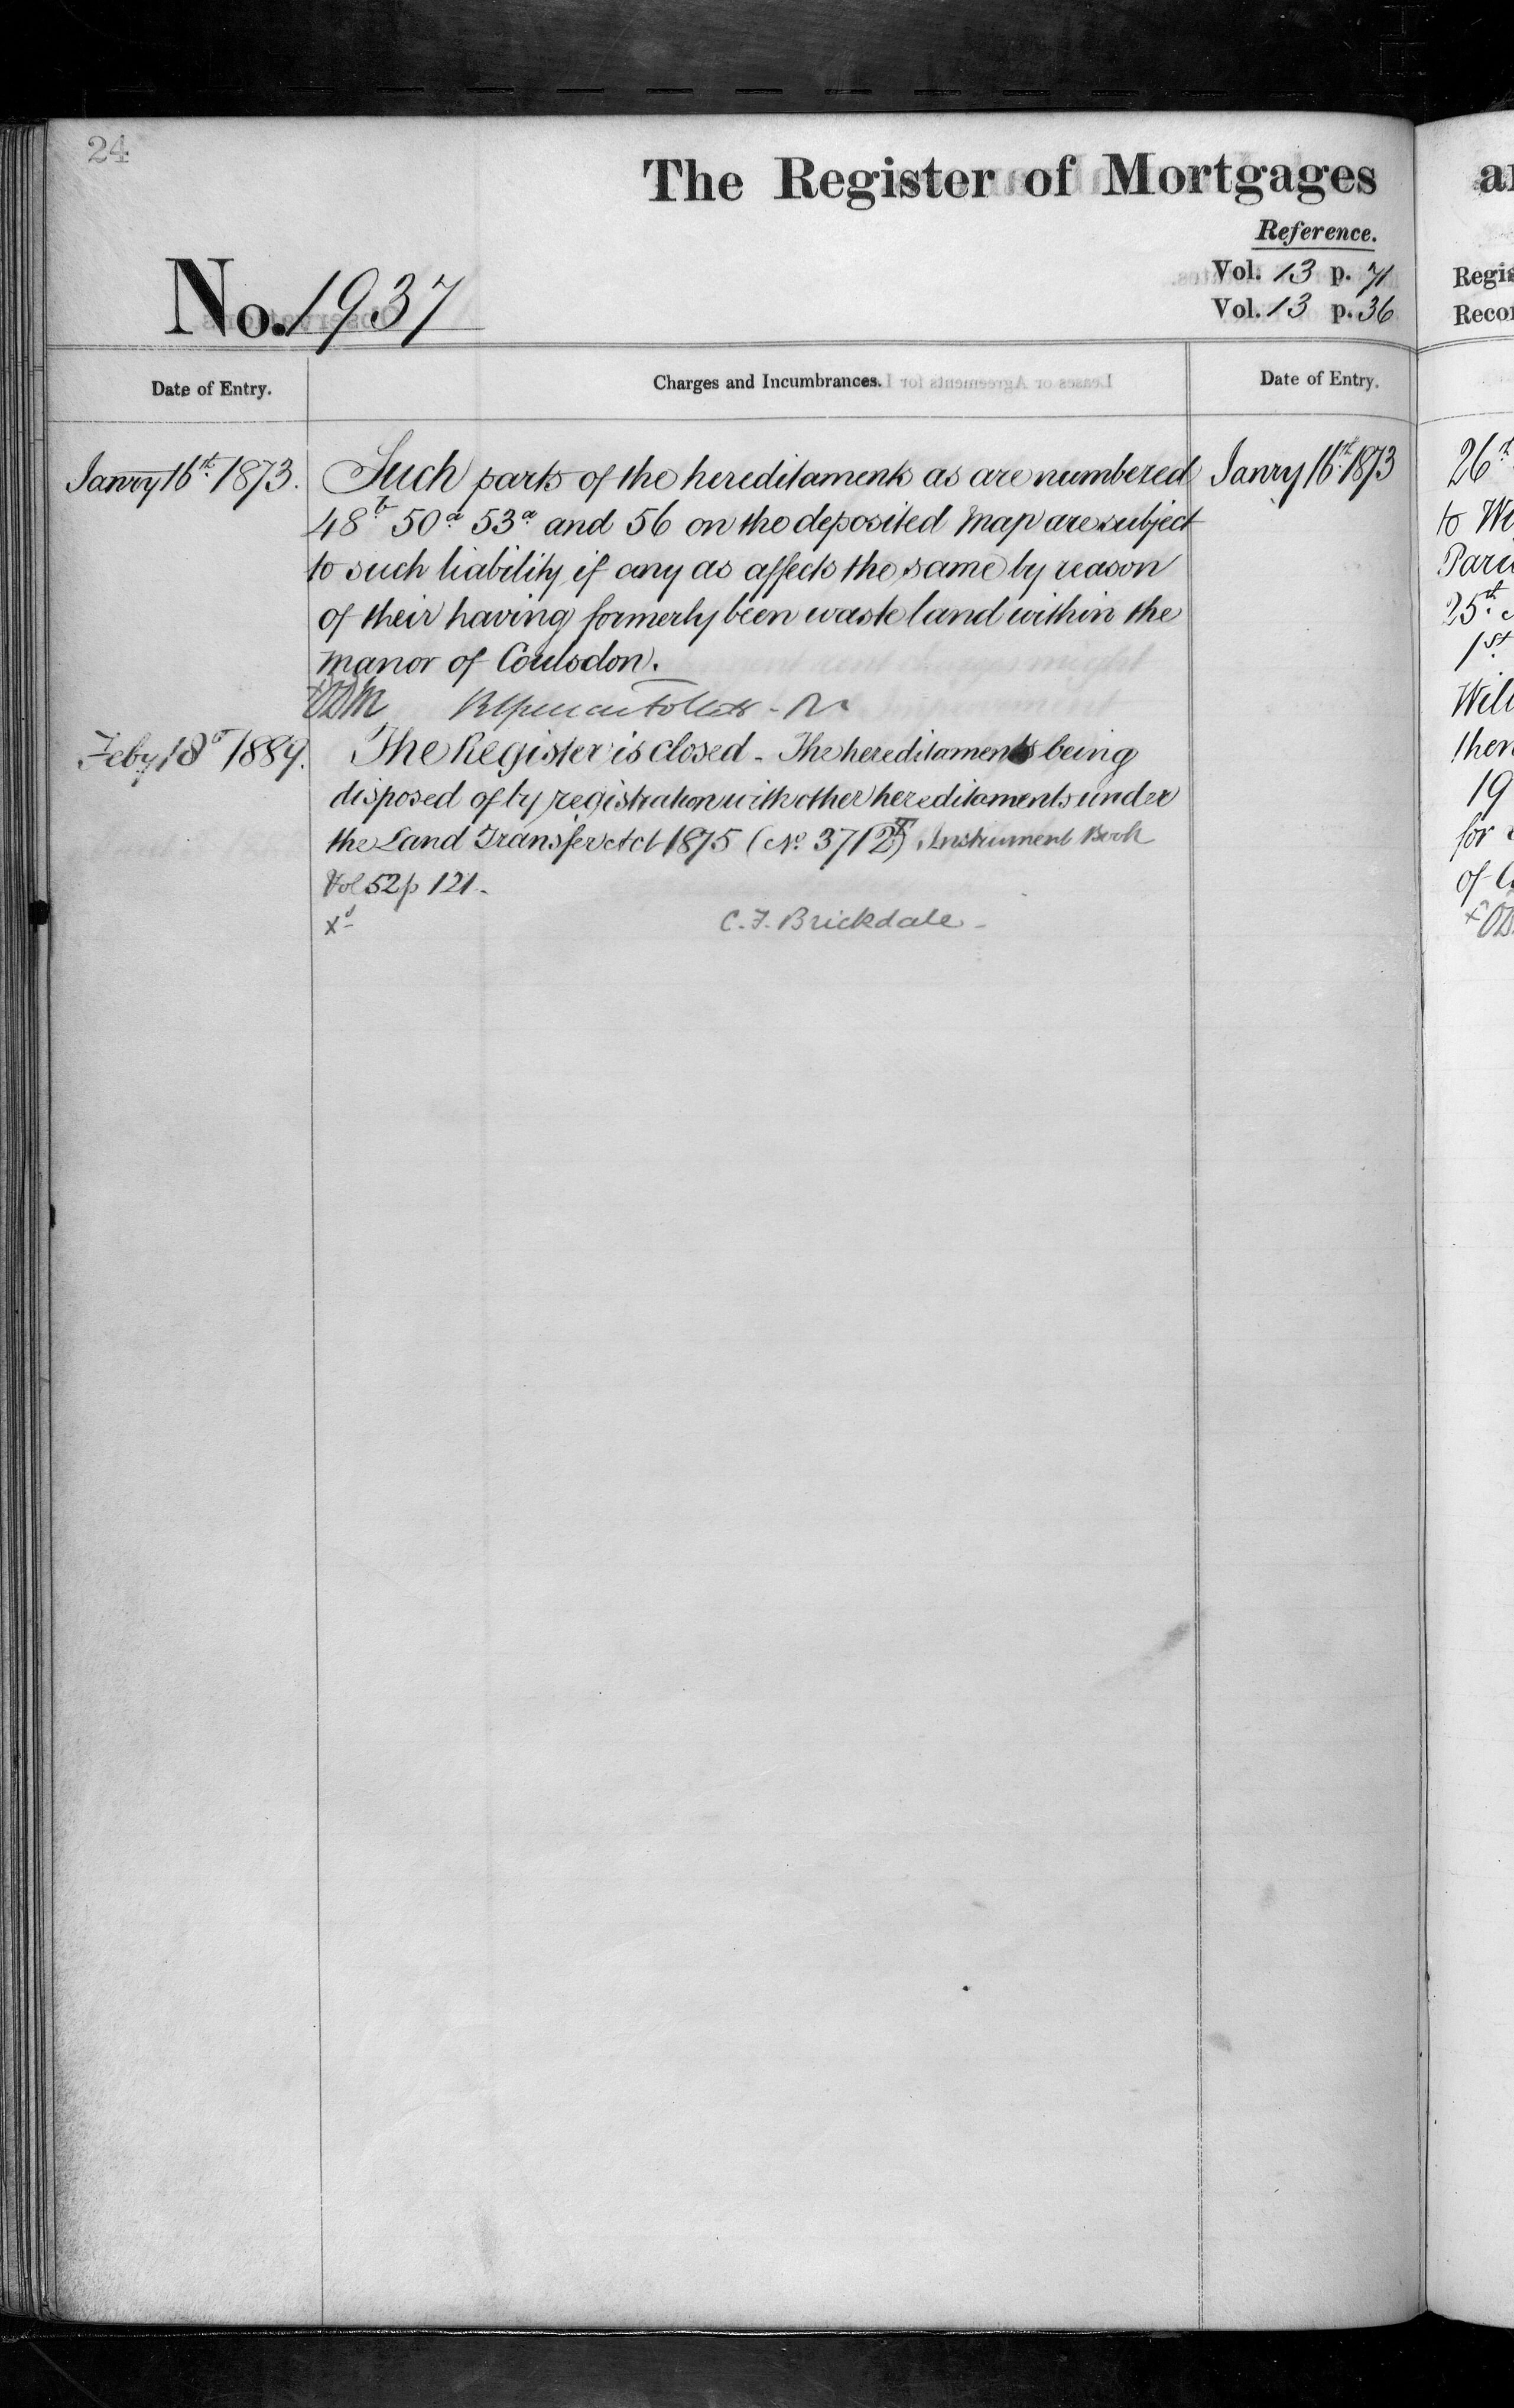 24
The Register of Mortgages
Reference.
No. 1937
Vol. 13 p. 71
Vol. 13 p. 36
Date of Entry.
Charges and Incumbrances.
Date of Entry.
Janry 16th 1873.
Such parts of the hereditaments as are numbered
48b 50a 53a and 56 on the deposited Map are subject
to such liability if any as affects the same by reason
of their having formerly been waste land within the
Manor of Coulsdon.
Feby 18th 1889.
The Register is closed - The hereditaments being
disposed of by registration with other hereditaments under
the Land Transfer Act 1875 (No. 3712) Instrument Book
Vol 52 p 121 -
xd
C. F. Brickdale -
Janry 16th 1873
26th
to
25th
1st
Will
19
for
of